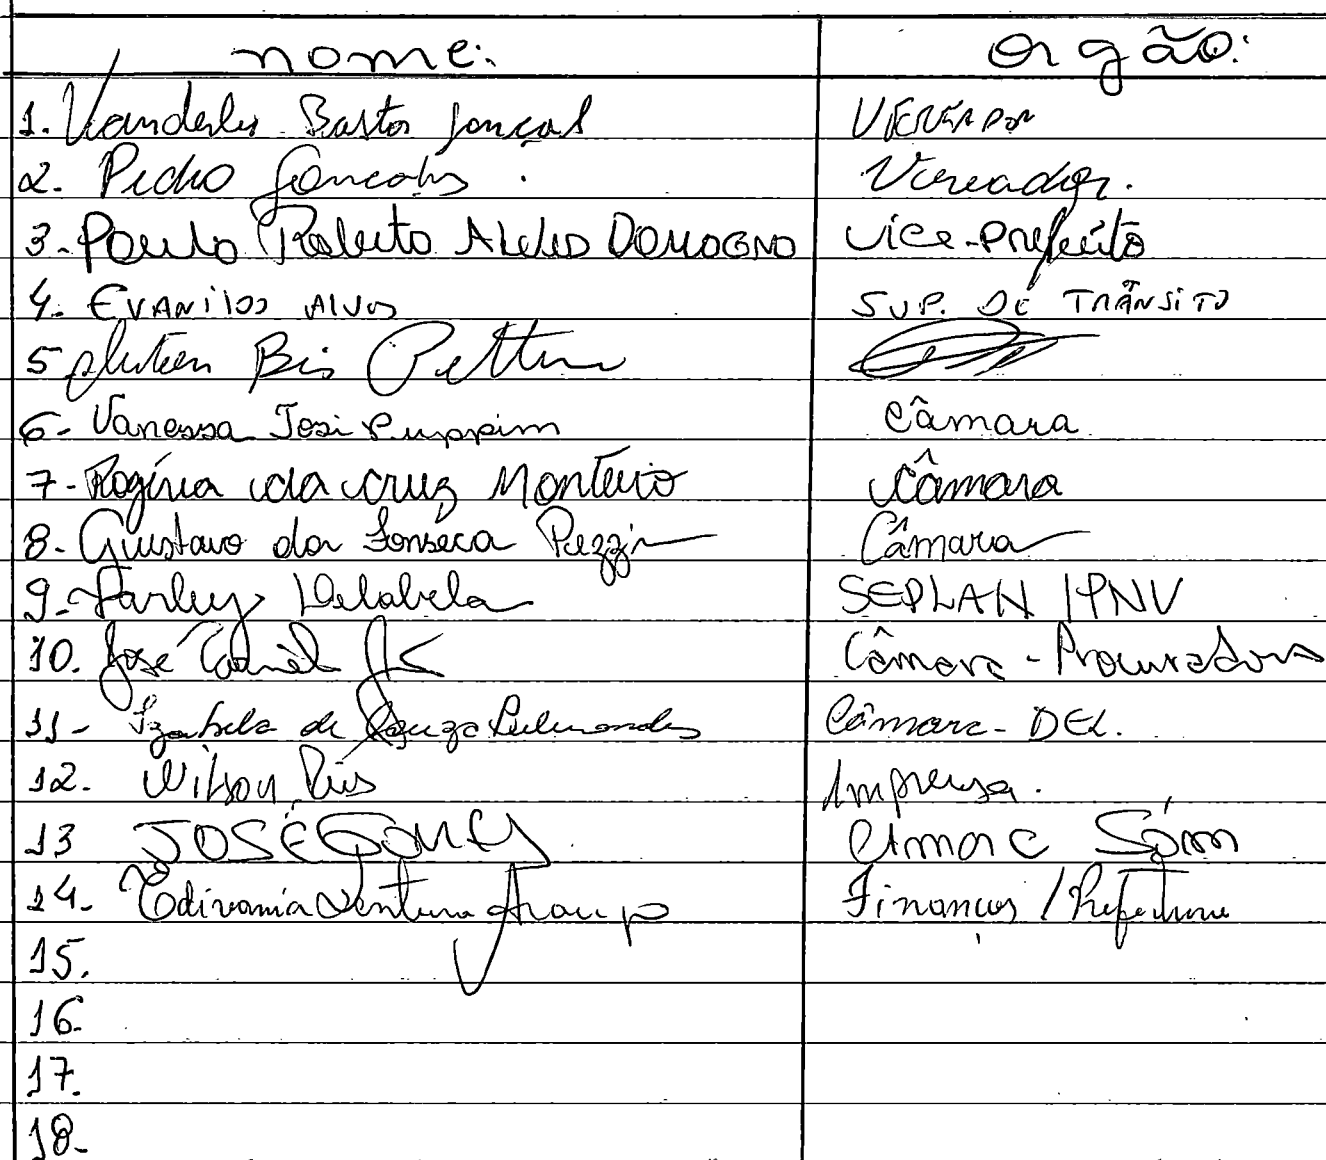 nome: orgão:
1. Vanderley Bastos Gonçal VEREADOR
2. Pedro Gonçalves. Vereador.
3- Paulo Roberto Aleles DOMOGNO vice-prefeito
4. EVANILDO ALVES SUP. DE TRÂNSITO
5
6- Vanessa Josi Puppim Câmara
7- Rogíria da cruz Monteiro Câmara
8- Gustavo da Fonseca Pezzin Câmara
9- Farley Delabela SEPLAN / PNV
10. José Câmara - Procuradoria
11- Izabela de Souza Câmara -
12. Wilson Imprensa.
13 JOSÉ GOMES
14- Edivania Ventura Araujo Finanças / Prefeitura
15.
16.
17.
18-